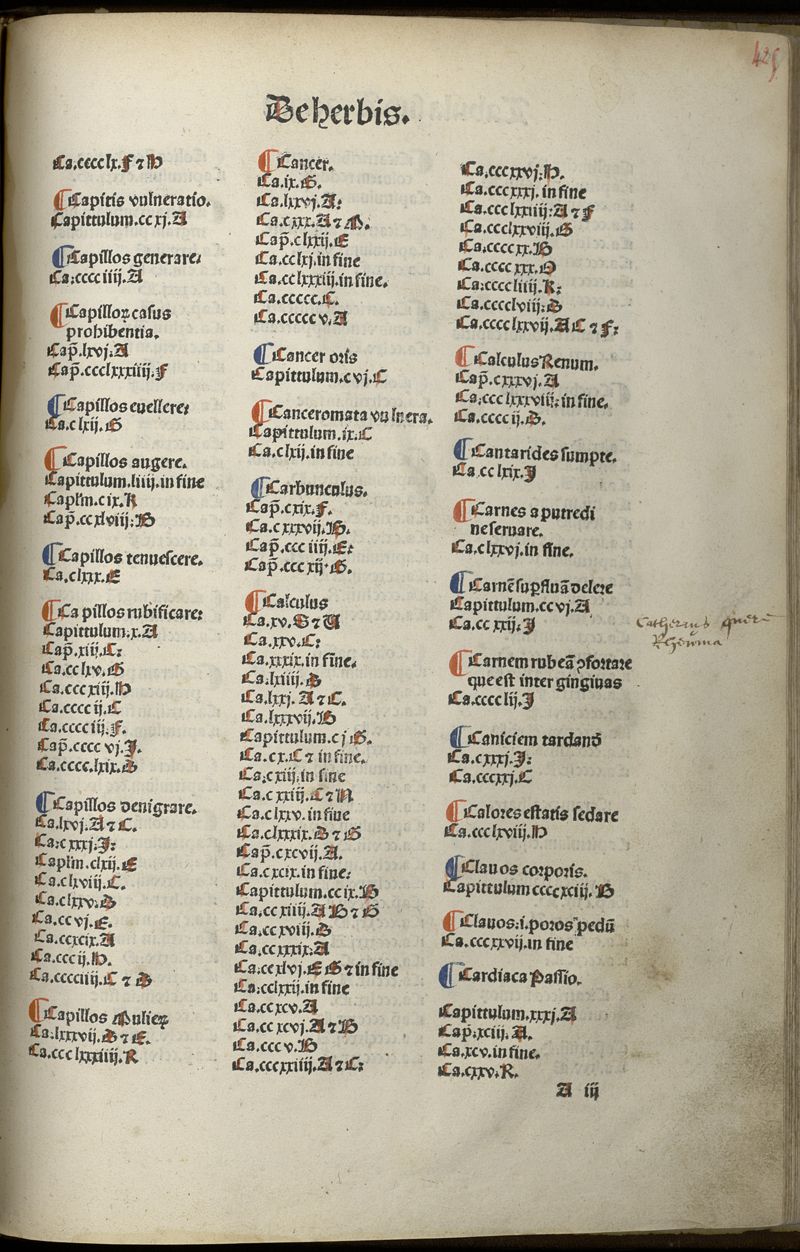 De herbis.
Ca.cccclx.f ⁊ H
¶ Capitis vulneratio.
Capittulum.ccxj.A
¶ Capillos generare:
Ca:cccciiij.A
¶ Capilloꝝ casus
prohibentia.
Cap̄.lxvj.A
Cap̄.ccclxxxiiij.f
¶ Capillos euellere:
Ca.clxij.G
¶ Capillos augere.
Capittulum.liiij.in fine
Caplm̄.cix.R
Cap̄.ccxlviij:B
¶ Capillos tenuescere.
Ca.clxx.E
¶ Capillos rubificare:
Capittulum.x.A
Cap̄.xiij.C:
Ca.cclxv.G
Ca.cccxiij.H
Ca.ccccij.C
Ca.cccciij.f.
Cap̄.ccccvj.J.
Ca.cccc.lxix.D
¶ Capillos denigrare.
Ca.lxvj.A ⁊ C.
Ca:cxxxj.J:
Caplm̄.clxij.E
Ca.clxviij.C.
Ca.clxxv.D
Ca.ccvj.E.
Ca.ccxcix.A
Ca.cccij.H.
Ca.cccciiij.C ⁊ D
¶ Capillos Mulieꝝ
Ca.lxxxvij.D ⁊ E.
Ca.ccclxxxiiij.R
¶ Cancer.
Ca.ix.G.
Ca.lxxvj.A:
Ca.cxxx.A ⁊ M.
Cap̄.clxxij.E
Ca.cclxj.in fine
Ca.cclxxxiij.in fine.
Ca.ccccc.C.
Ca.cccccv.A
¶ Cancer oris
Capittulum.cvj.C
¶ Canceromata vulnera.
Capittulum.ix.C
Ca.clxij.in fine
¶ Carbunculus.
Cap̄.cxix.f.
Ca.cxxxvij.B.
Cap̄.ccciiij.E:
Cap̄.cccxij.G.
¶ Calculus
Ca.xv.S ⁊ V
Ca.xxv.C:
Ca.xxxix.in fine.
Ca.lxiiij.D
Ca.lxxj.A ⁊ C.
Ca.lxxxvij.B
Capittulum.cj.G.
Ca.cx.C ⁊ in fine.
Ca:cxiij.in fine
Ca.cxxiij.C ⁊ N
Ca.clxxv.in fine
Ca.clxxxix.D ⁊ G
Cap̄.cxcvij.A.
Ca.cxcix.in fine:
Capittulum.ccix.B
Ca.ccxiiij.A B ⁊ G
Ca.ccxviij.D
Ca.ccxxxix:A
Ca:ccxlvj.E G ⁊ in fine
Ca:cclxxij.in fine
Ca.ccxcv.A
Ca.ccxcvj.A ⁊ B
Ca.cccv.B
Ca.cccxxiiij.A ⁊ C:
Ca.cccxxvj:H.
Ca.cccxxxj.in fine
Ca.ccclxxiiij:A ⁊ f
Ca.ccclxxviij.G
Ca.ccccxx.B
Ca.ccccxxx.O
Ca:ccccliiij.R:
Ca.cccclviij:D
Ca.cccclxxvij.A C ⁊ f:
¶ Calculus Renum.
Cap̄.cxxxvj.A
Ca:ccclxxxviij:in fine.
Ca.ccccij.D.
¶ Cantarides sumpte.
Ca.cclxix.J
¶ Carnes a putredi
ne seruare.
Ca.clxxvj.in fine.
¶ Carnē supfluā delere
Capittulum.ccvj.A
Ca.ccxxij.J
¶ Carnem rubeā ꝯfortare
que est inter gingiuas
Ca.cccclij.J
¶ Caniciem tardandō
Ca.cxxxj.J:
Ca.cccxxj.C
¶ Calores estatis sedare
Ca.ccclxviij.H
¶ Clauos corporis.
Capittulum ccccxciij.B
¶ Clauos:.i.poros pedū
Ca.cccxxvij.in fine
¶ Cardiaca Passio.
Capittulum.xxxj.A
Cap̄.xciij.A.
Ca.xcv.in fine.
Ca.cxxv.R.
A iij